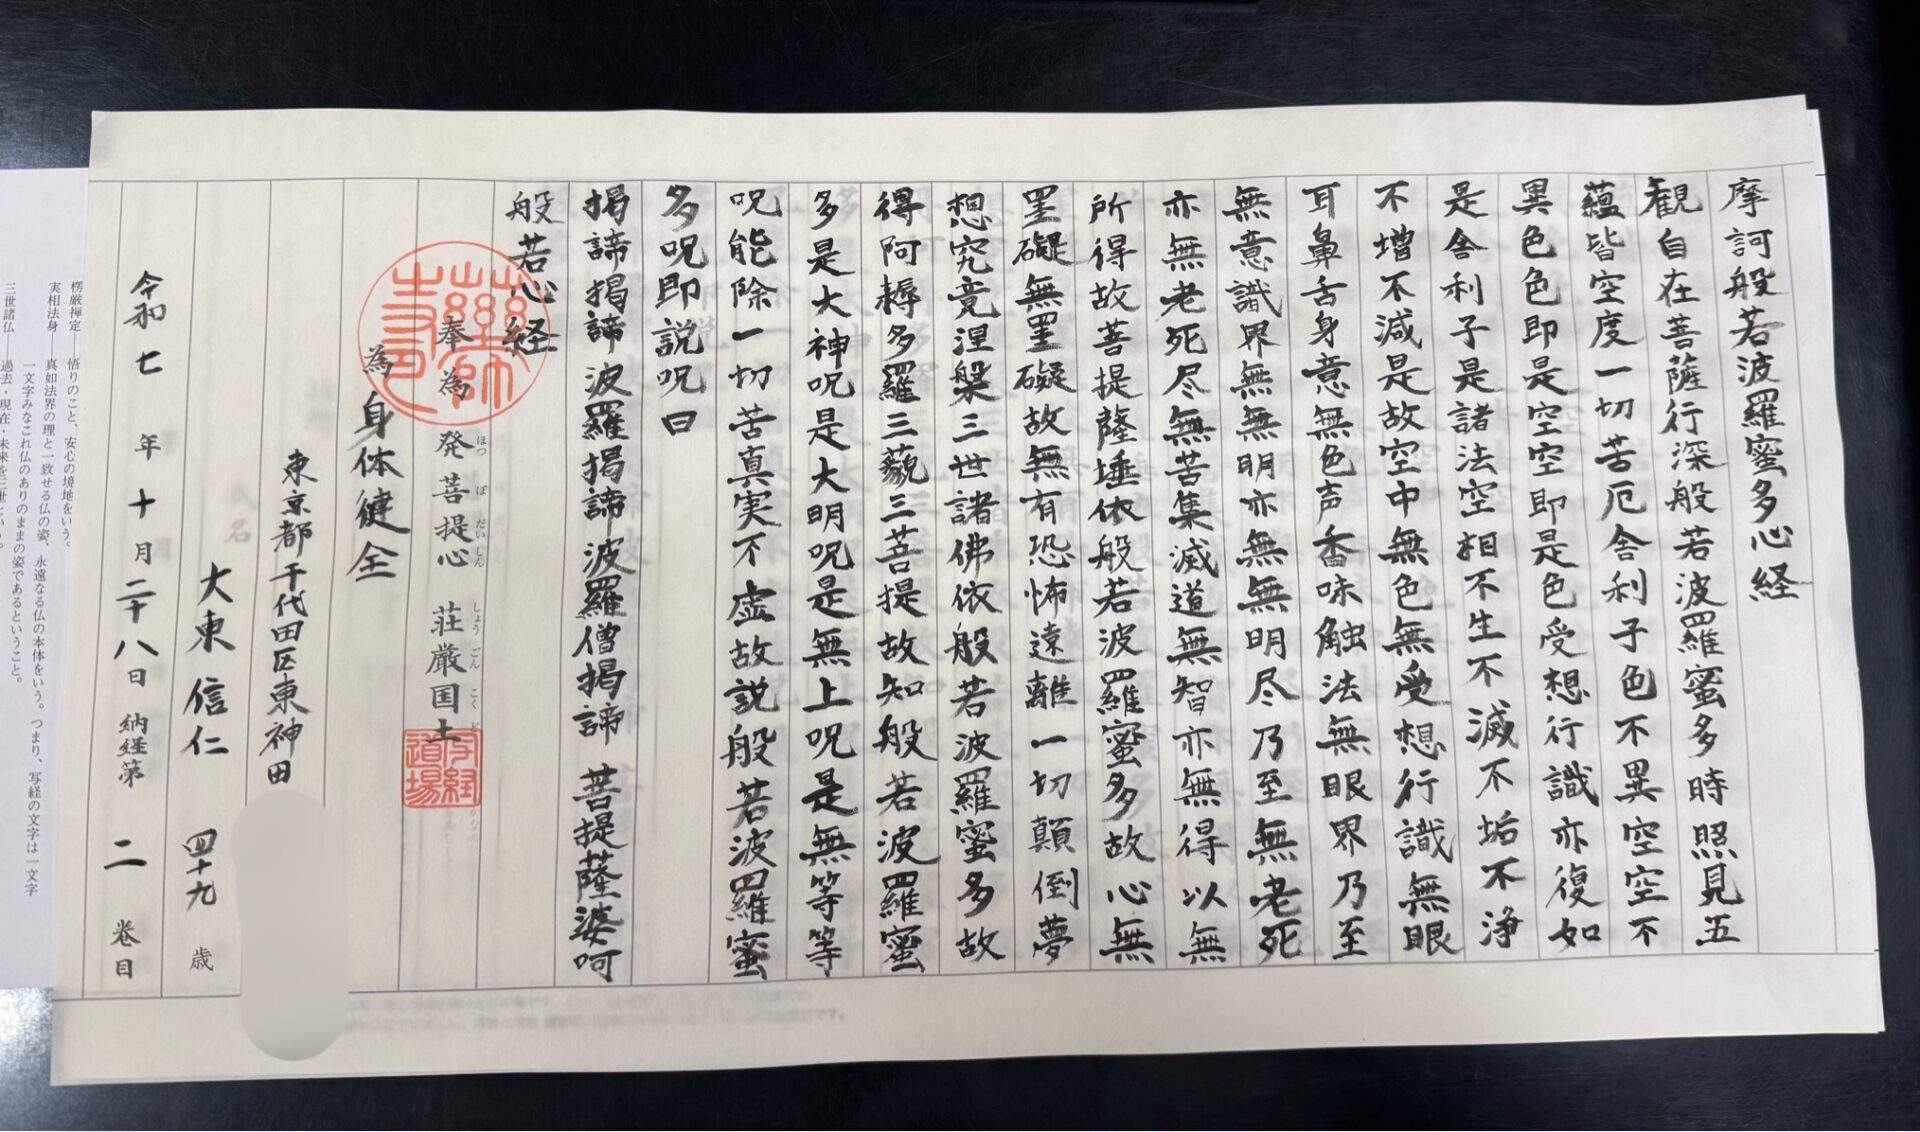 摩訶般若波羅蜜多心経
観自在菩薩行深般若波羅蜜多時照見五
蘊皆空度一切苦厄舎利子色不異空空不
異色色即是空空即是色受想行識亦復如
是舎利子是諸法空相不生不滅不垢不浄
不増不減是故空中無色無受想行識無眼
耳鼻舌身意無色声香味触法無眼界乃至
無意識界無無明亦無無明尽乃至無老死
亦無老死尽無苦集滅道無智亦無得以無
所得故菩提薩埵依般若波羅蜜多故心無
罣礙無罣礙故無有恐怖遠離一切顛倒夢
想究竟涅槃三世諸佛依般若波羅蜜多故
得阿耨多羅三藐三菩提故知般若波羅蜜
多是大神呪是大明呪是無上呪是無等等
呪能除一切苦真実不虚故説般若波羅蜜
多呪即説呪曰
掲諦掲諦波羅掲諦波羅僧掲諦 菩提薩婆呵
般若心経
薬師寺
奉為 発菩提心 荘厳国土
ほつ ぼ だいしん しょう ごん こく ど
写経道場
為 身体健全
東京都千代田区東神田
大東信仁 四十九 歳
令和七年十月二十八日 納経第 二 巻目
楞厳禅定――悟りのこと、安心の境地をいう。
実相法身――真如法界の理と一致せる仏の姿、永遠なる仏の本体をいう。つまり、写経の文字は一文字
一文字みなこれ仏のありのままの姿であるということ。
三世諸仏――過去・現在・未来を三世という。